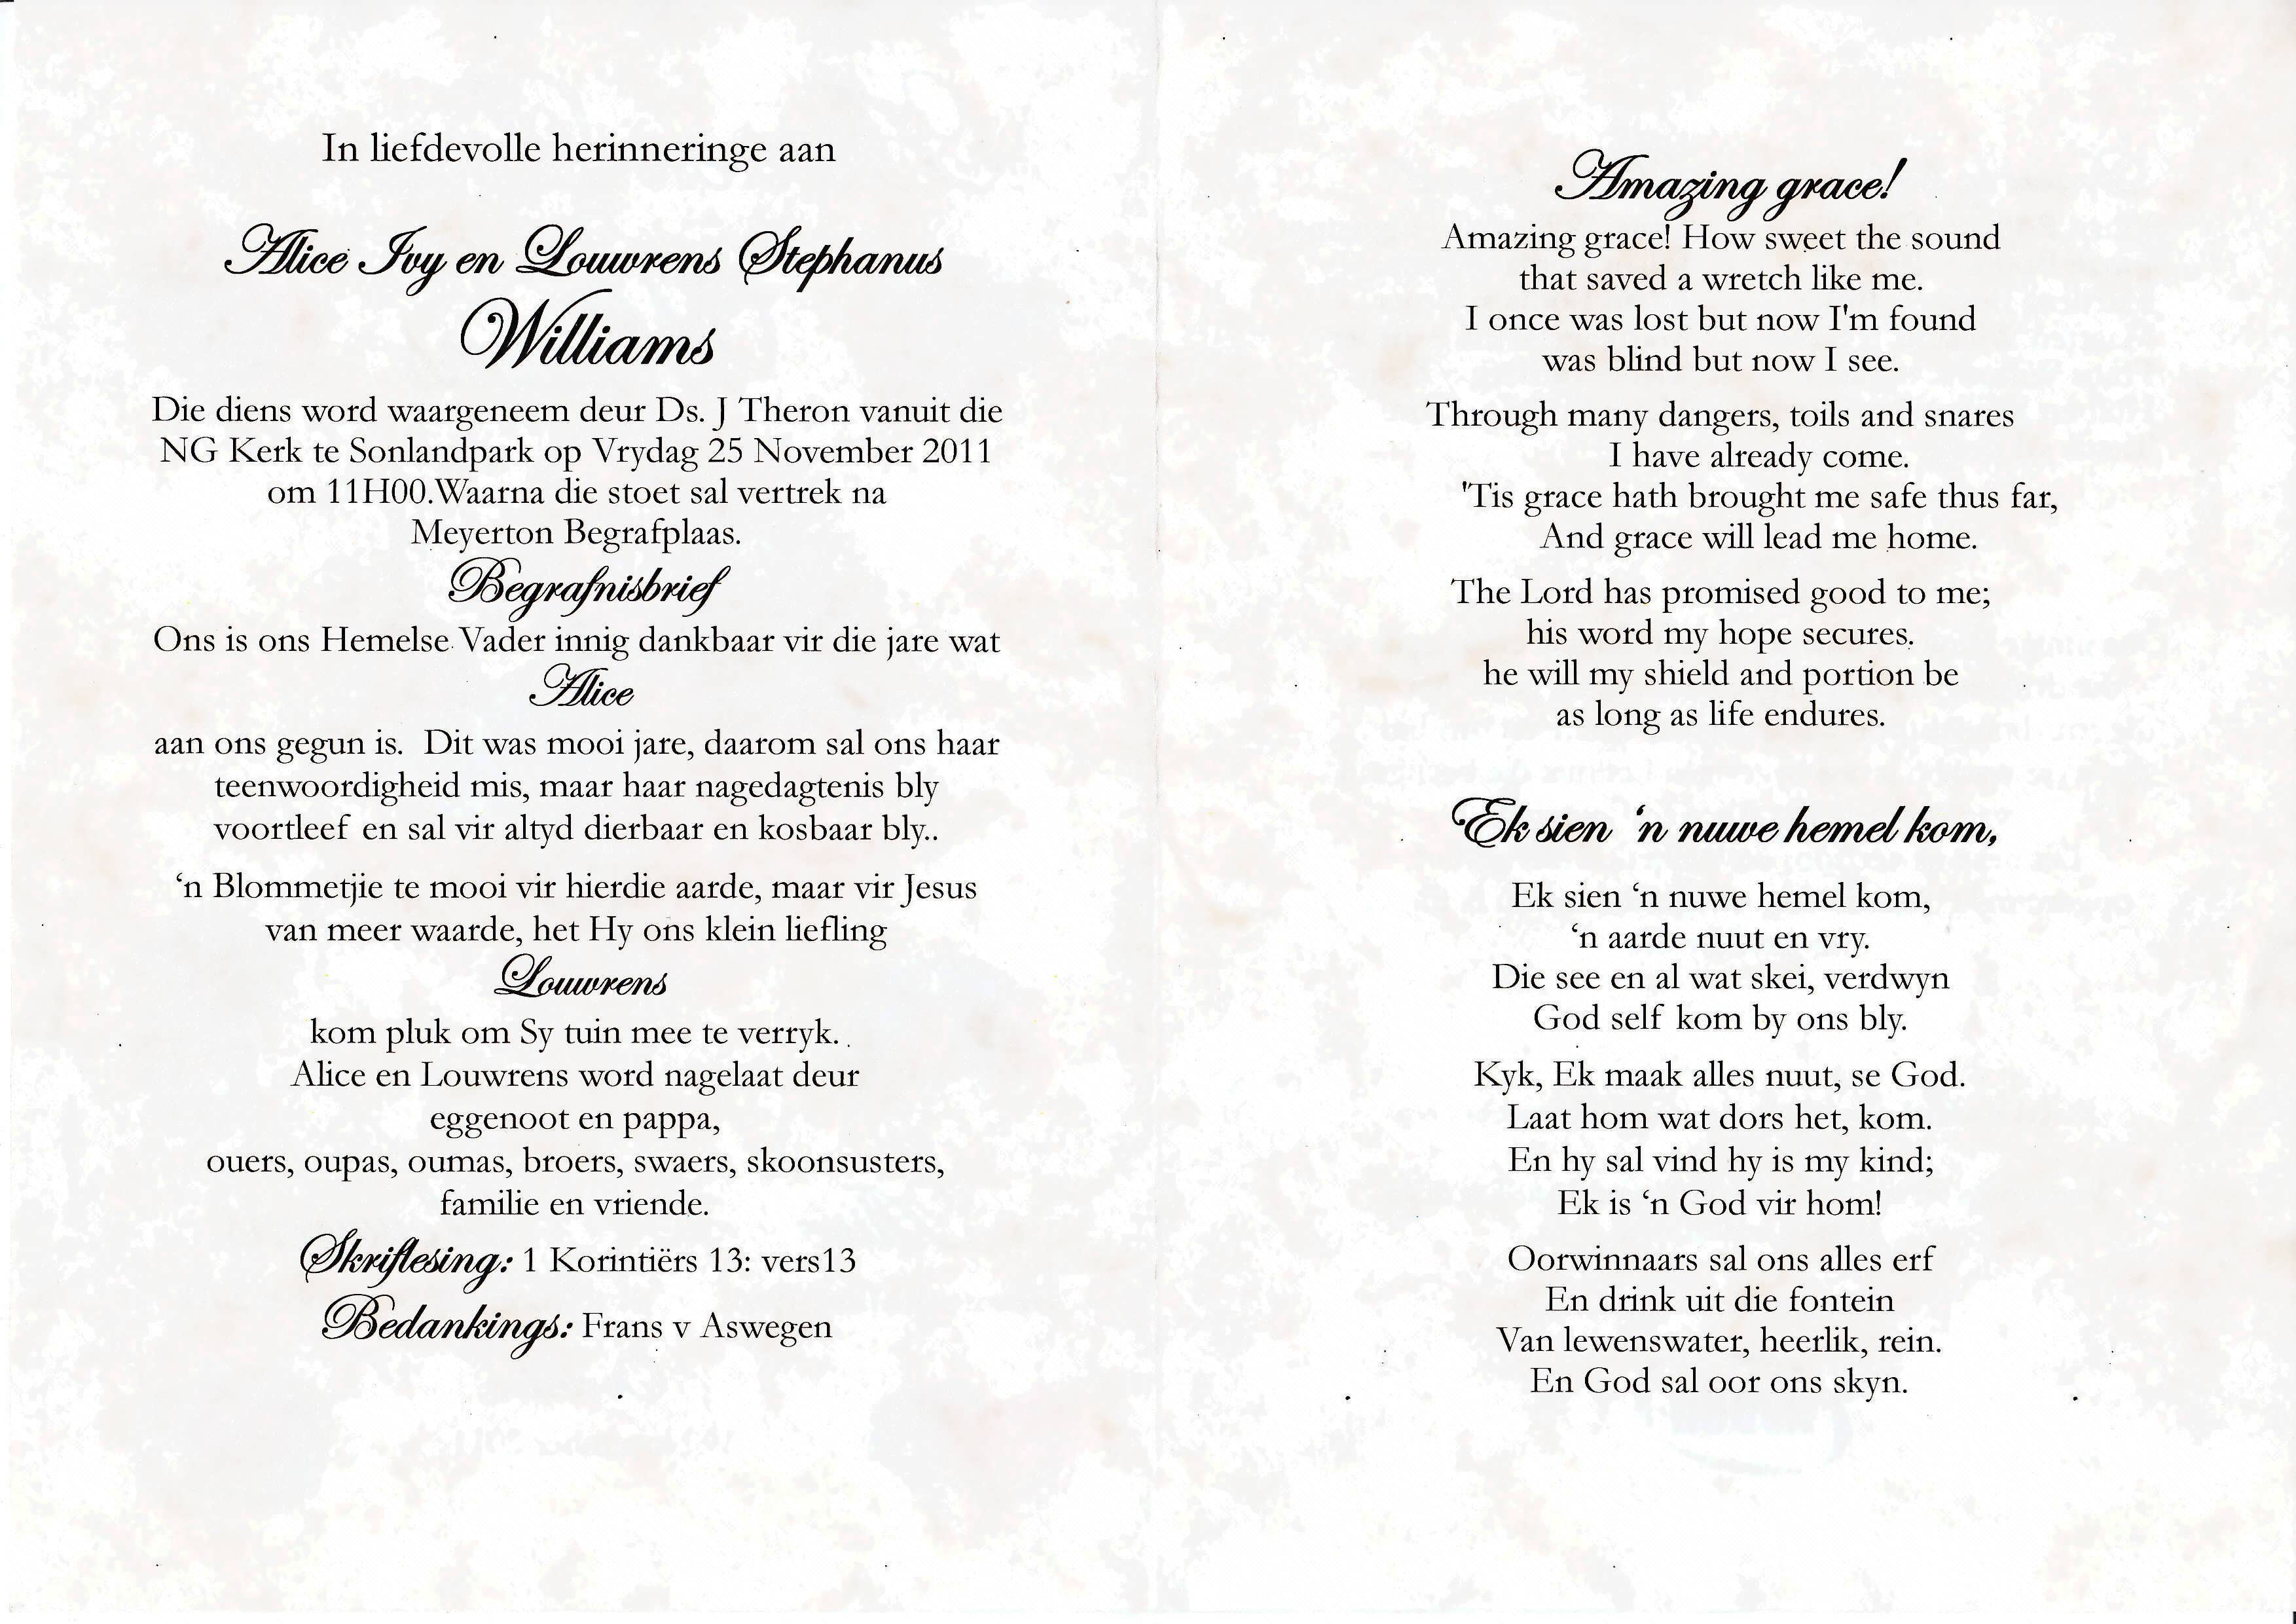 In liefdevolle herinneringe aan
Alice Ivy en Louwrens Stephanus
Williams
Die diens word waargeneem deur Ds. J Theron vanuit die
NG Kerk te Sonlandpark op Vrydag 25 November 2011
om 11H00.Waarna die stoet sal vertrek na
Meyerton Begrafplaas.
Begrafnisbrief
Ons is ons Hemelse Vader innig dankbaar vir die jare wat
Alice
aan ons gegun is. Dit was mooi jare, daarom sal ons haar
teenwoordigheid mis, maar haar nagedagtenis bly
voortleef en sal vir altyd dierbaar en kosbaar bly..
‘n Blommetjie te mooi vir hierdie aarde, maar vir Jesus
van meer waarde, het Hy ons klein liefling
Louwrens
kom pluk om Sy tuin mee te verryk.
Alice en Louwrens word nagelaat deur
eggenoot en pappa,
ouers, oupas, oumas, broers, swaers, skoonsusters,
familie en vriende.
Skriflesing: 1 Korintiërs 13: vers13
Bedankings: Frans v Aswegen
Amazing grace!
Amazing grace! How sweet the sound
that saved a wretch like me.
I once was lost but now I'm found
was blind but now I see.
Through many dangers, toils and snares
I have already come.
'Tis grace hath brought me safe thus far,
And grace will lead me home.
The Lord has promised good to me;
his word my hope secures.
he will my shield and portion be
as long as life endures.
Ek sien ‘n nuwe hemel kom,
Ek sien ‘n nuwe hemel kom,
‘n aarde nuut en vry.
Die see en al wat skei, verdwyn
God self kom by ons bly.
Kyk, Ek maak alles nuut, se God.
Laat hom wat dors het, kom.
En hy sal vind hy is my kind;
Ek is ‘n God vir hom!
Oorwinnaars sal ons alles erf
En drink uit die fontein
Van lewenswater, heerlik, rein.
En God sal oor ons skyn.